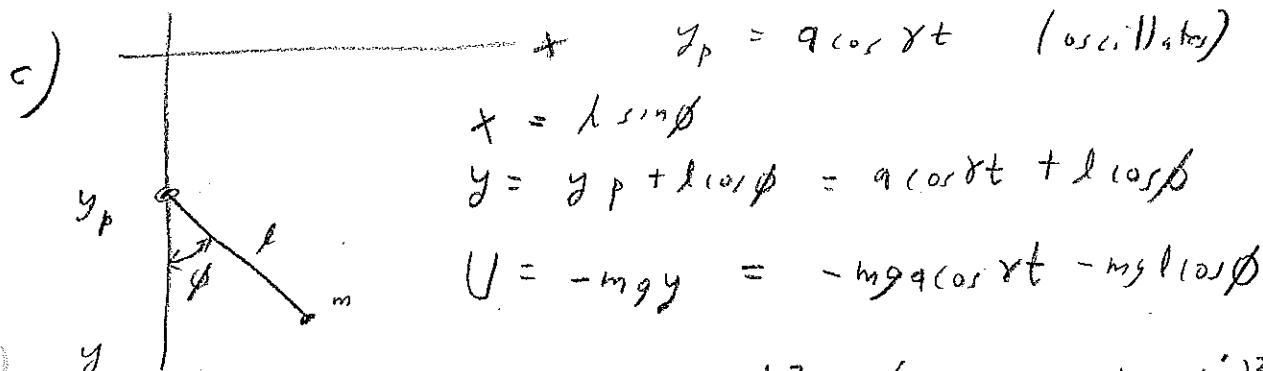 c)
x
y_p = a cos γt (oscillates)
x = l sin ϕ
y = y_p + l cos ϕ = a cos γt + l cos ϕ
y_p
l
ϕ
m
U = -mgy = -mga cos γt - mgl cos ϕ
y